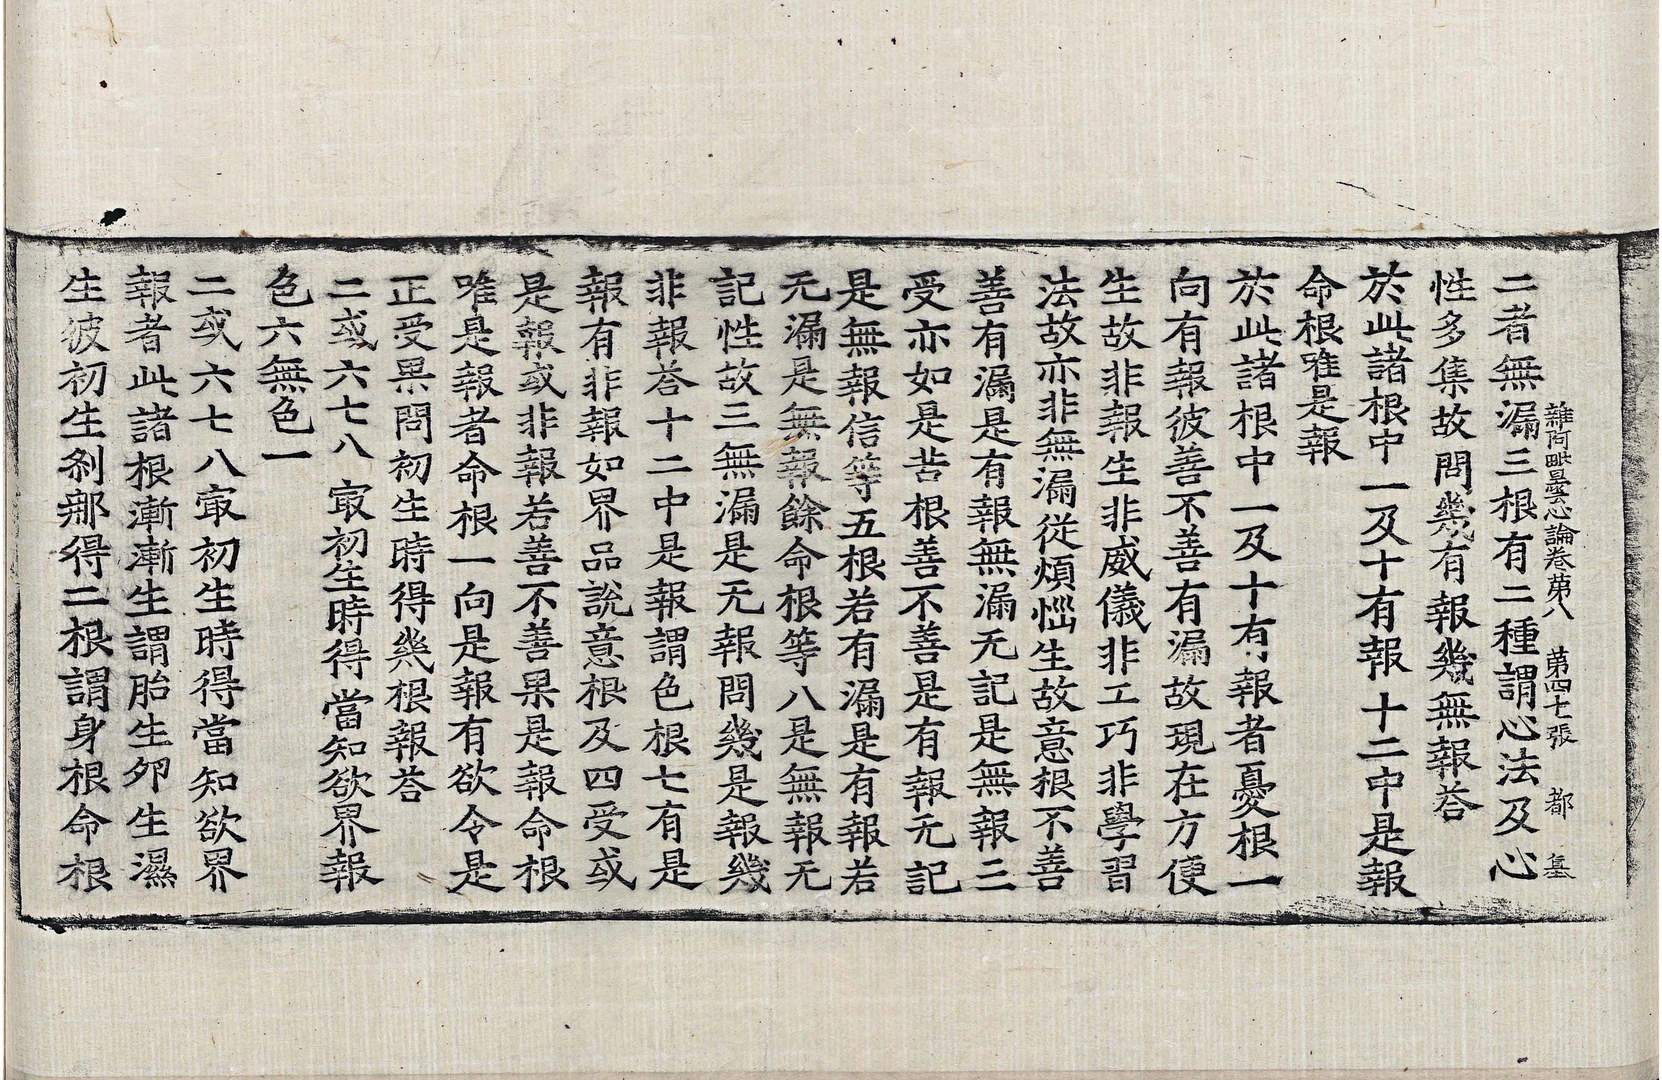 雜阿毗曇心論卷苐八　苐四七張　都　集
二者無漏三根有二種謂心法及心
性多集故問幾有報幾無報荅
於此諸根中一及十有報十二中是報
命根唯是報
於此諸根中一及十有報者憂根一
向有報彼善不善有漏故現在方便
生故非報生非威儀非工巧非學習
法故亦非無漏從煩惱生故意根不善
善有漏是有報無漏无記是無報三
受亦如是苦根善不善是有報无記
是無報信等五根若有漏是有報若
无漏是無報餘命根等八是無報无
記性故三無漏是无報問幾是報幾
非報荅十二中是報謂色根七有是
報有非報如界品說意根及四受或
是報或非報若善不善果是報命根
唯是報者命根一向是報有欲令是
正受果問初生時得幾根報荅
二或六七八㝡初生時得當知欲界報
色六無色一
二或六七八㝡初生時得當知欲界
報者此諸根漸漸生謂胎生夘生濕
生彼初生刹那得二根謂身根命根